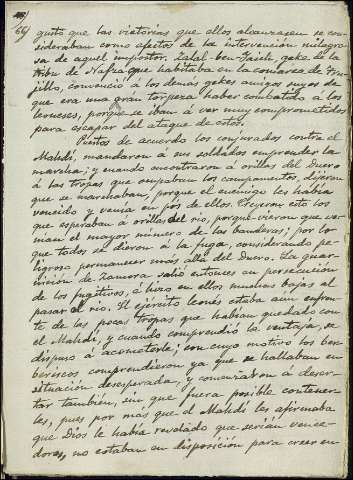 gusto que las victorias que ellos alcanzasen se con-
sideraban como efectos de la intervención milagro-
sa de aquel impostor. Zalal-ben-Yaich, geke de la
tribu de Nafza, que habitaba en la comarca de Tru-
jillo, convenció a los demás gekes amigos suyos de
que era una gran torpeza haber combatido a los
leoneses, porque se iban á ver muy comprometidos
para escapar del ataque de estos.
Puestos de acuerdo los conjurados contra el
Mahdí, mandaron á sus soldados emprender la
marcha; y cuando encontraron á orillas del Duero
á las tropas que ocupaban los campamentos, dijeron
que se marchaban, porque el enemigo les había
vencido y venía en pós de ellos. Creyeron esto los
que esperaban á orillas del río, porque vieron que ve-
nían el mayor número de las banderas; por lo
que todos se dieron á la fuga, considerando pe-
ligroso permanecer más allá del Duero. La guar-
nición de Zamora salió entonces en persecución
de los fugitivos, é hizo en ellos muchas bajas al
pasar el río. El ejército leonés estaba aún enfren-
te de las pocas tropas que habían quedado con
el Mahdí, y cuando comprendió la ventaja, se
dispuso á acometerle; con cuyo motivo los ber-
beríscos comprendieron ya que se hallaban en
situación desesperada, y comenzaron á deser-
tar también, sin que fuera posible contener-
les, pues por más que el Mahdí les afirmaba
que Dios le había revelado que serían vence-
dores, no estaban en disposición para creer en